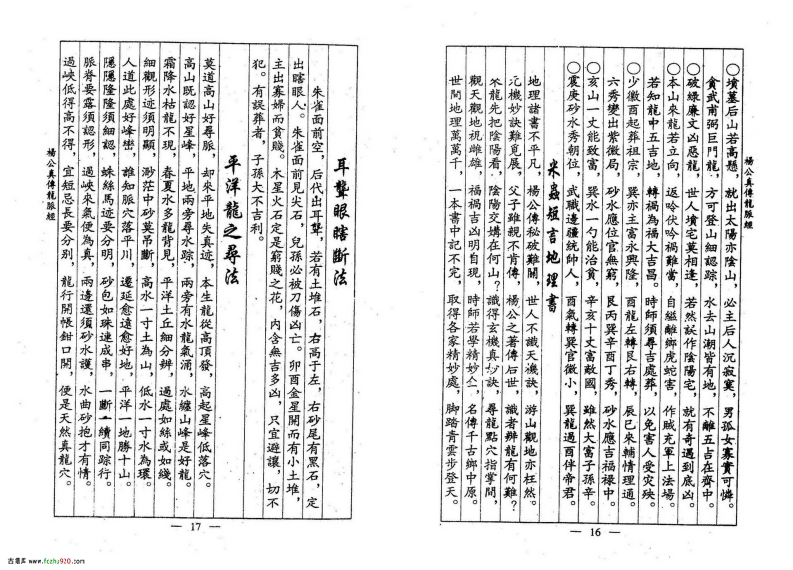 楊公真傳龍脈經
○墳墓后山若高懸，就出太陽亦陰山，必主后人沉寂寞，男孤女寡實可憐。
貪武甫弼巨門龍，方可登山細認踪，水去山潮皆有地，不離五占在齊中。
○破綠廉文凶惡龍，世人墳宅莫相逢，若然誤作陰陽宅，就有奇遇到底凶。
○本山來龍若立向，返吟伏吟禍難當，自縊離鄉虎蛇害，作賊充軍上法場。
若知龍中五吉地，轉禍為福大吉昌。時師須尋吉處葬，以免害人受灾殃。
○少徽酉起葬祖宗，巽亦主富永興隆，酉龍左轉艮右轉，辰巳來輔情理通。
六秀變出紫徽局，砂水應位官無窮，艮丙巽辛酉丁秀，砂水應吉福祿中。
○亥山一丈能致富，巽水一勺能治貧，辛亥十丈富敵國，雖然大富子孫辛。
○震庚砂水秀朝位，武職邊疆統帥人，酉氣轉巽官徽小，巽龍過酉伴帝君。
米蟲短言地理書
地理諸書不平凡，楊公傳秘破難關，世人不識天機訣，游山觀地亦枉然。
機妙訣難覓展，父子雖親不肯傳，楊公之著傳后世，識者辨龍有何難？
龍先把陰陽看，陰陽交媾在何山？識得玄機真妙訣，尋龍點穴指掌間，
觀天觀地視雌雄，福禍吉凶明自現，時師若學精妙，名傳千古鄉中原。
世間地理萬萬千，一本書中記不完，取得各家精妙處，脚踏青雲步登天。
— 16 —
耳聾眼瞎斷法
朱雀面前空，后代出耳聾，若有土堆石，右高于左，右砂尾有黑石，定
出瞎眼人。朱雀面前見尖石，兒孫必被刀傷凶亡。卯酉金星開而有小土堆，
主出寡婦而貧賤。木星火石定是窮賤之花，内含無吉多凶，只宜避讓，切不
犯。有誤葬者，子孫大不吉利。
平洋龍之尋法
莫道高山好尋脈，却來平地失真迹，本生龍從高頂發，高起星峰低落穴。
高山既認好星峰，平地兩旁尋水踪，兩旁有水龍氣涌，水纏山峰是好龍。
霜降水枯龍不現，春夏水多龍背見，平洋土丘細分辨，過處如絲或如綫。
細觀形迹須明顯，渺茫中砂莫吊斷，高水一寸土為山，低水一寸水為環。
人道此處好峰巒，誰知脈穴落平川，遷延愈遠愈好地，平洋一地勝十山。
隱隱隆隆須細認，蛛絲馬迹要分明，砂包如珠連成串，一斷一續同踪行。
脈脊要露須認形，過峽來氣便為真，兩邊還須砂水護，水曲砂抱才有情。
過峽低得高不得，宜短忌長要分別，龍行開帳鉗口開，便是天然真龍穴。
楊公真傳龍脈經
— 17 —
古籍库 www.fczhu920.com